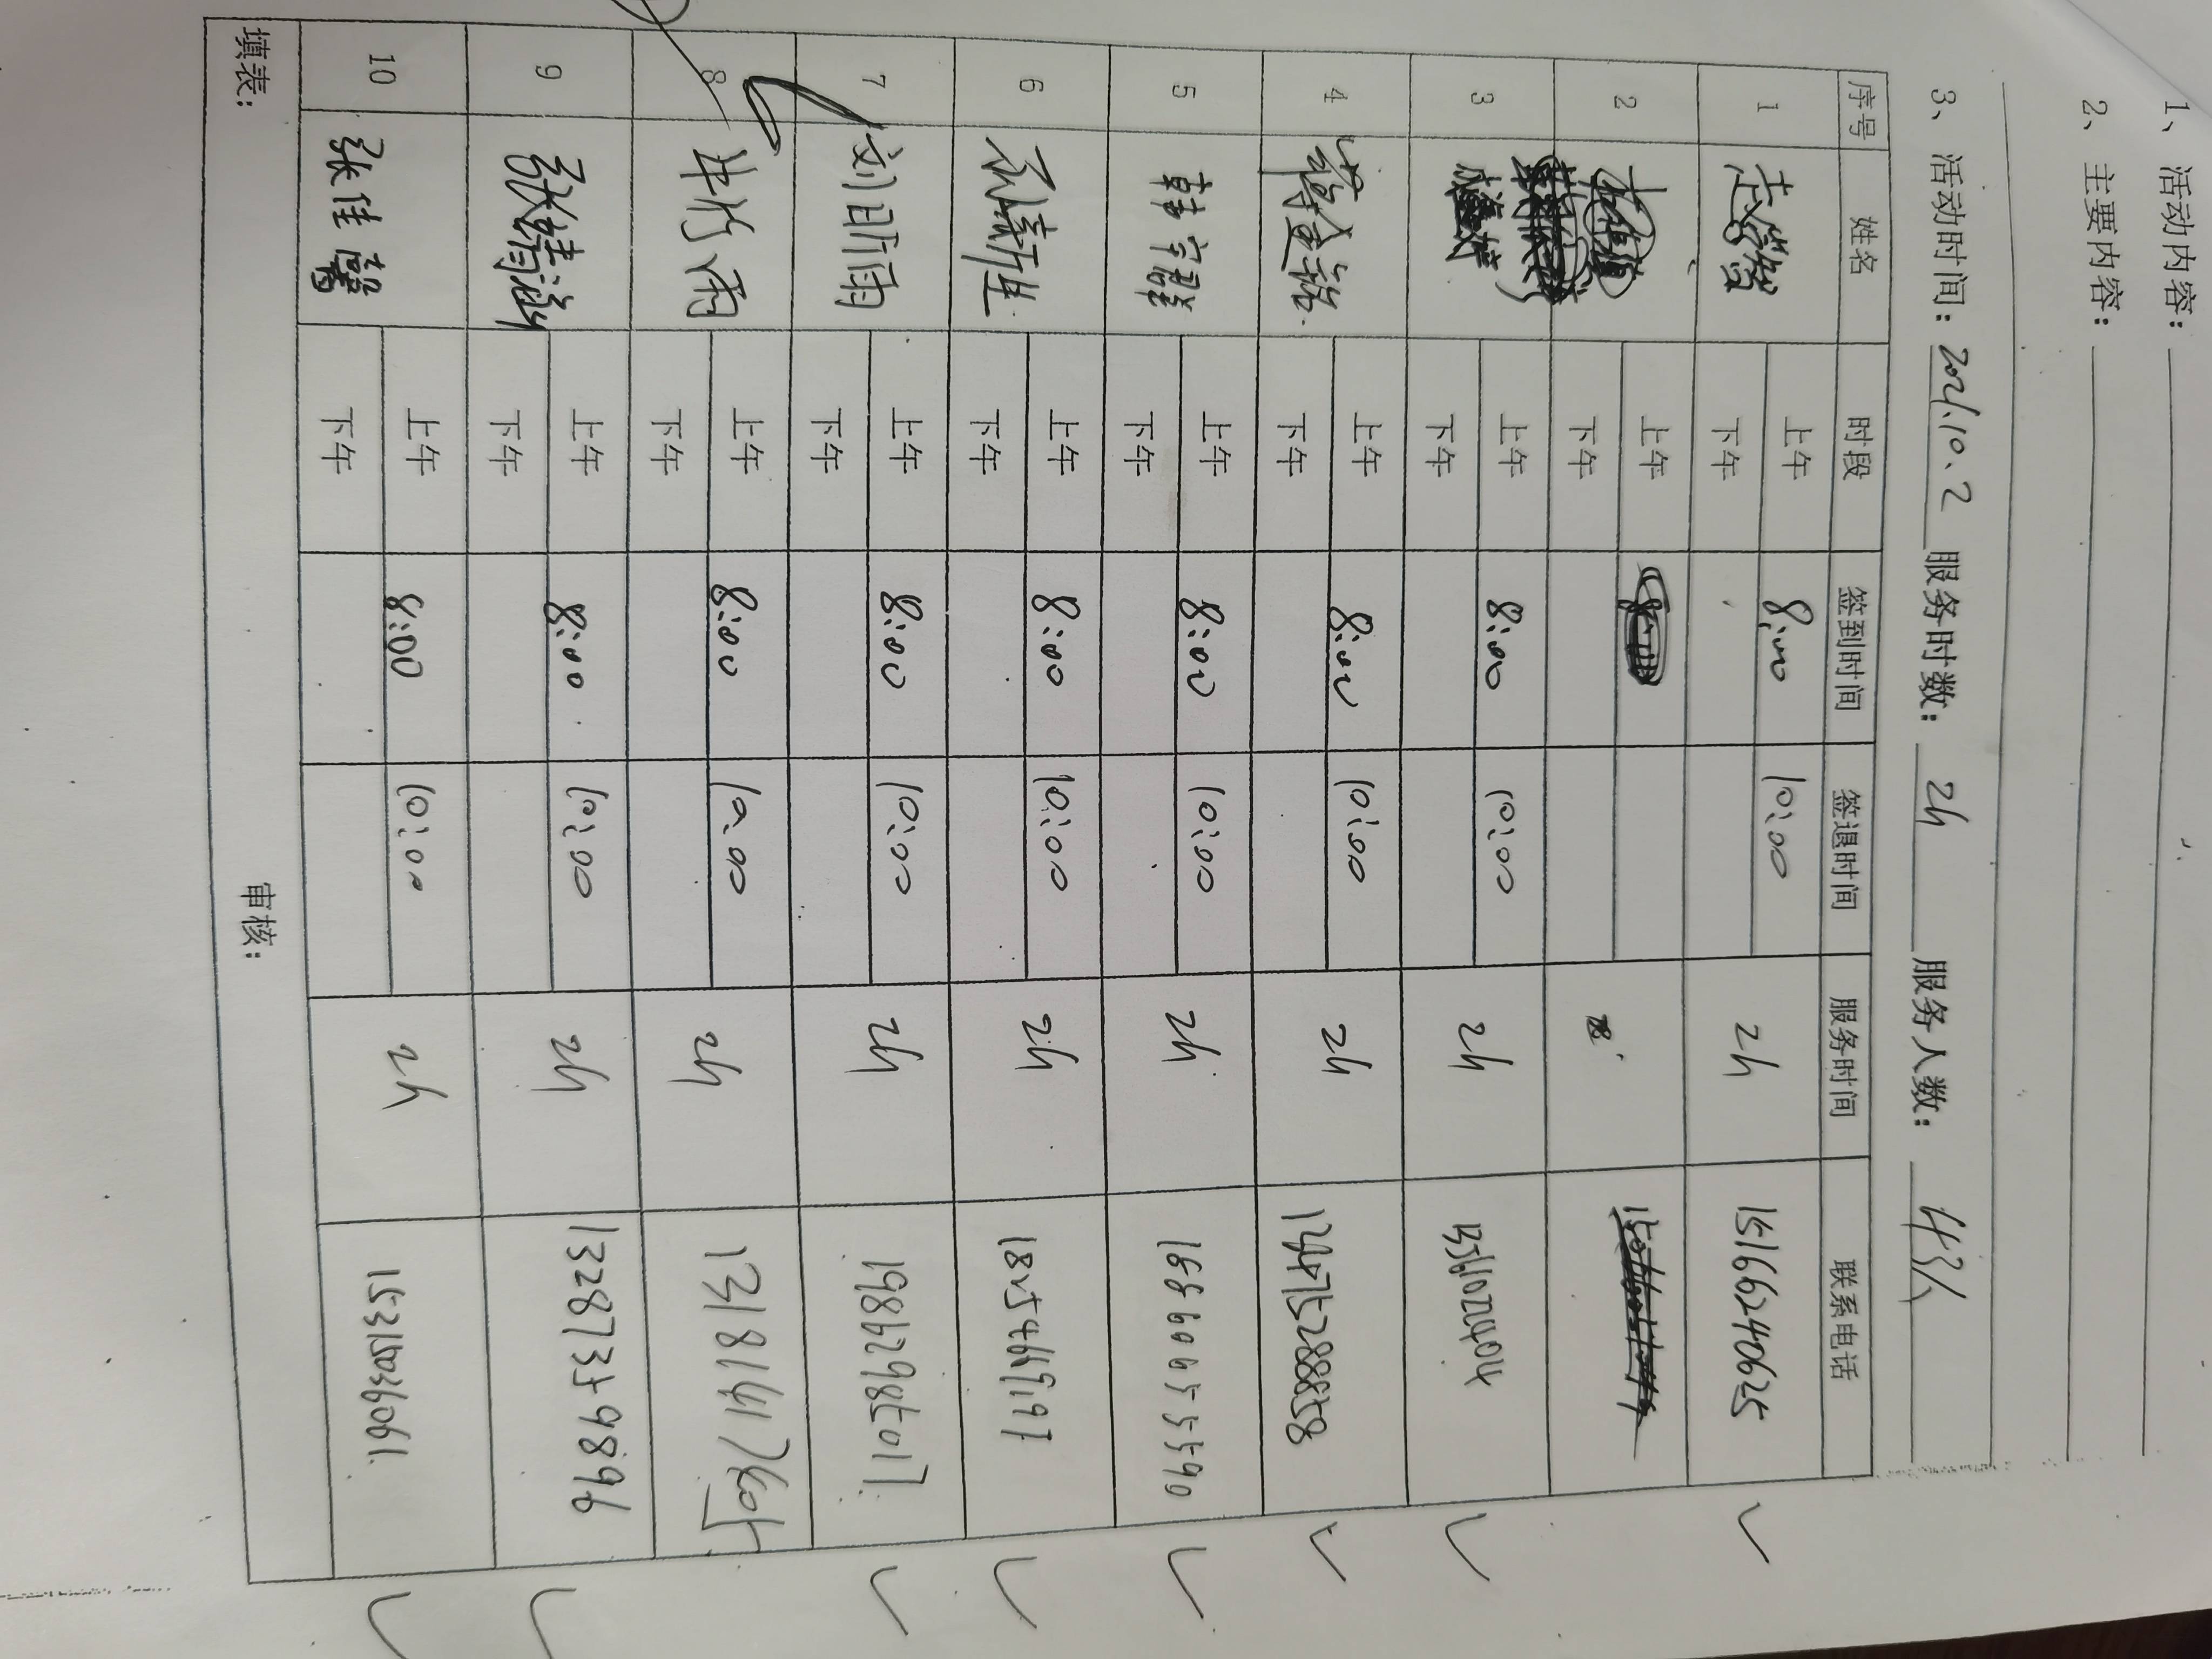 1、活动内容：
2、主要内容：
3、活动时间：2021.10.2 服务时数：2h 服务人数：43人
序号 姓名 时段 签到时间 签退时间 服务时间 联系电话
1 上午 8:00 10:00 2h 15166240625
下午
2 上午
下午
3 上午 8:00 10:00 2h
下午
4 上午 8:00 10:00 2h
下午
5 韩宇醒 上午 8:00 10:00 2h 16660655590
下午
6 上午 8:00 10:00 2h
下午
7 刘昕雨 上午 8:00 10:00 2h 19862987017
下午
8 上午 8:00 10:00 2h
下午
9 张婧涵 上午 8:00 10:00 2h 13287359896
下午
10 张佳馨 上午 8:00 10:00 2h
下午
填表： 审核：